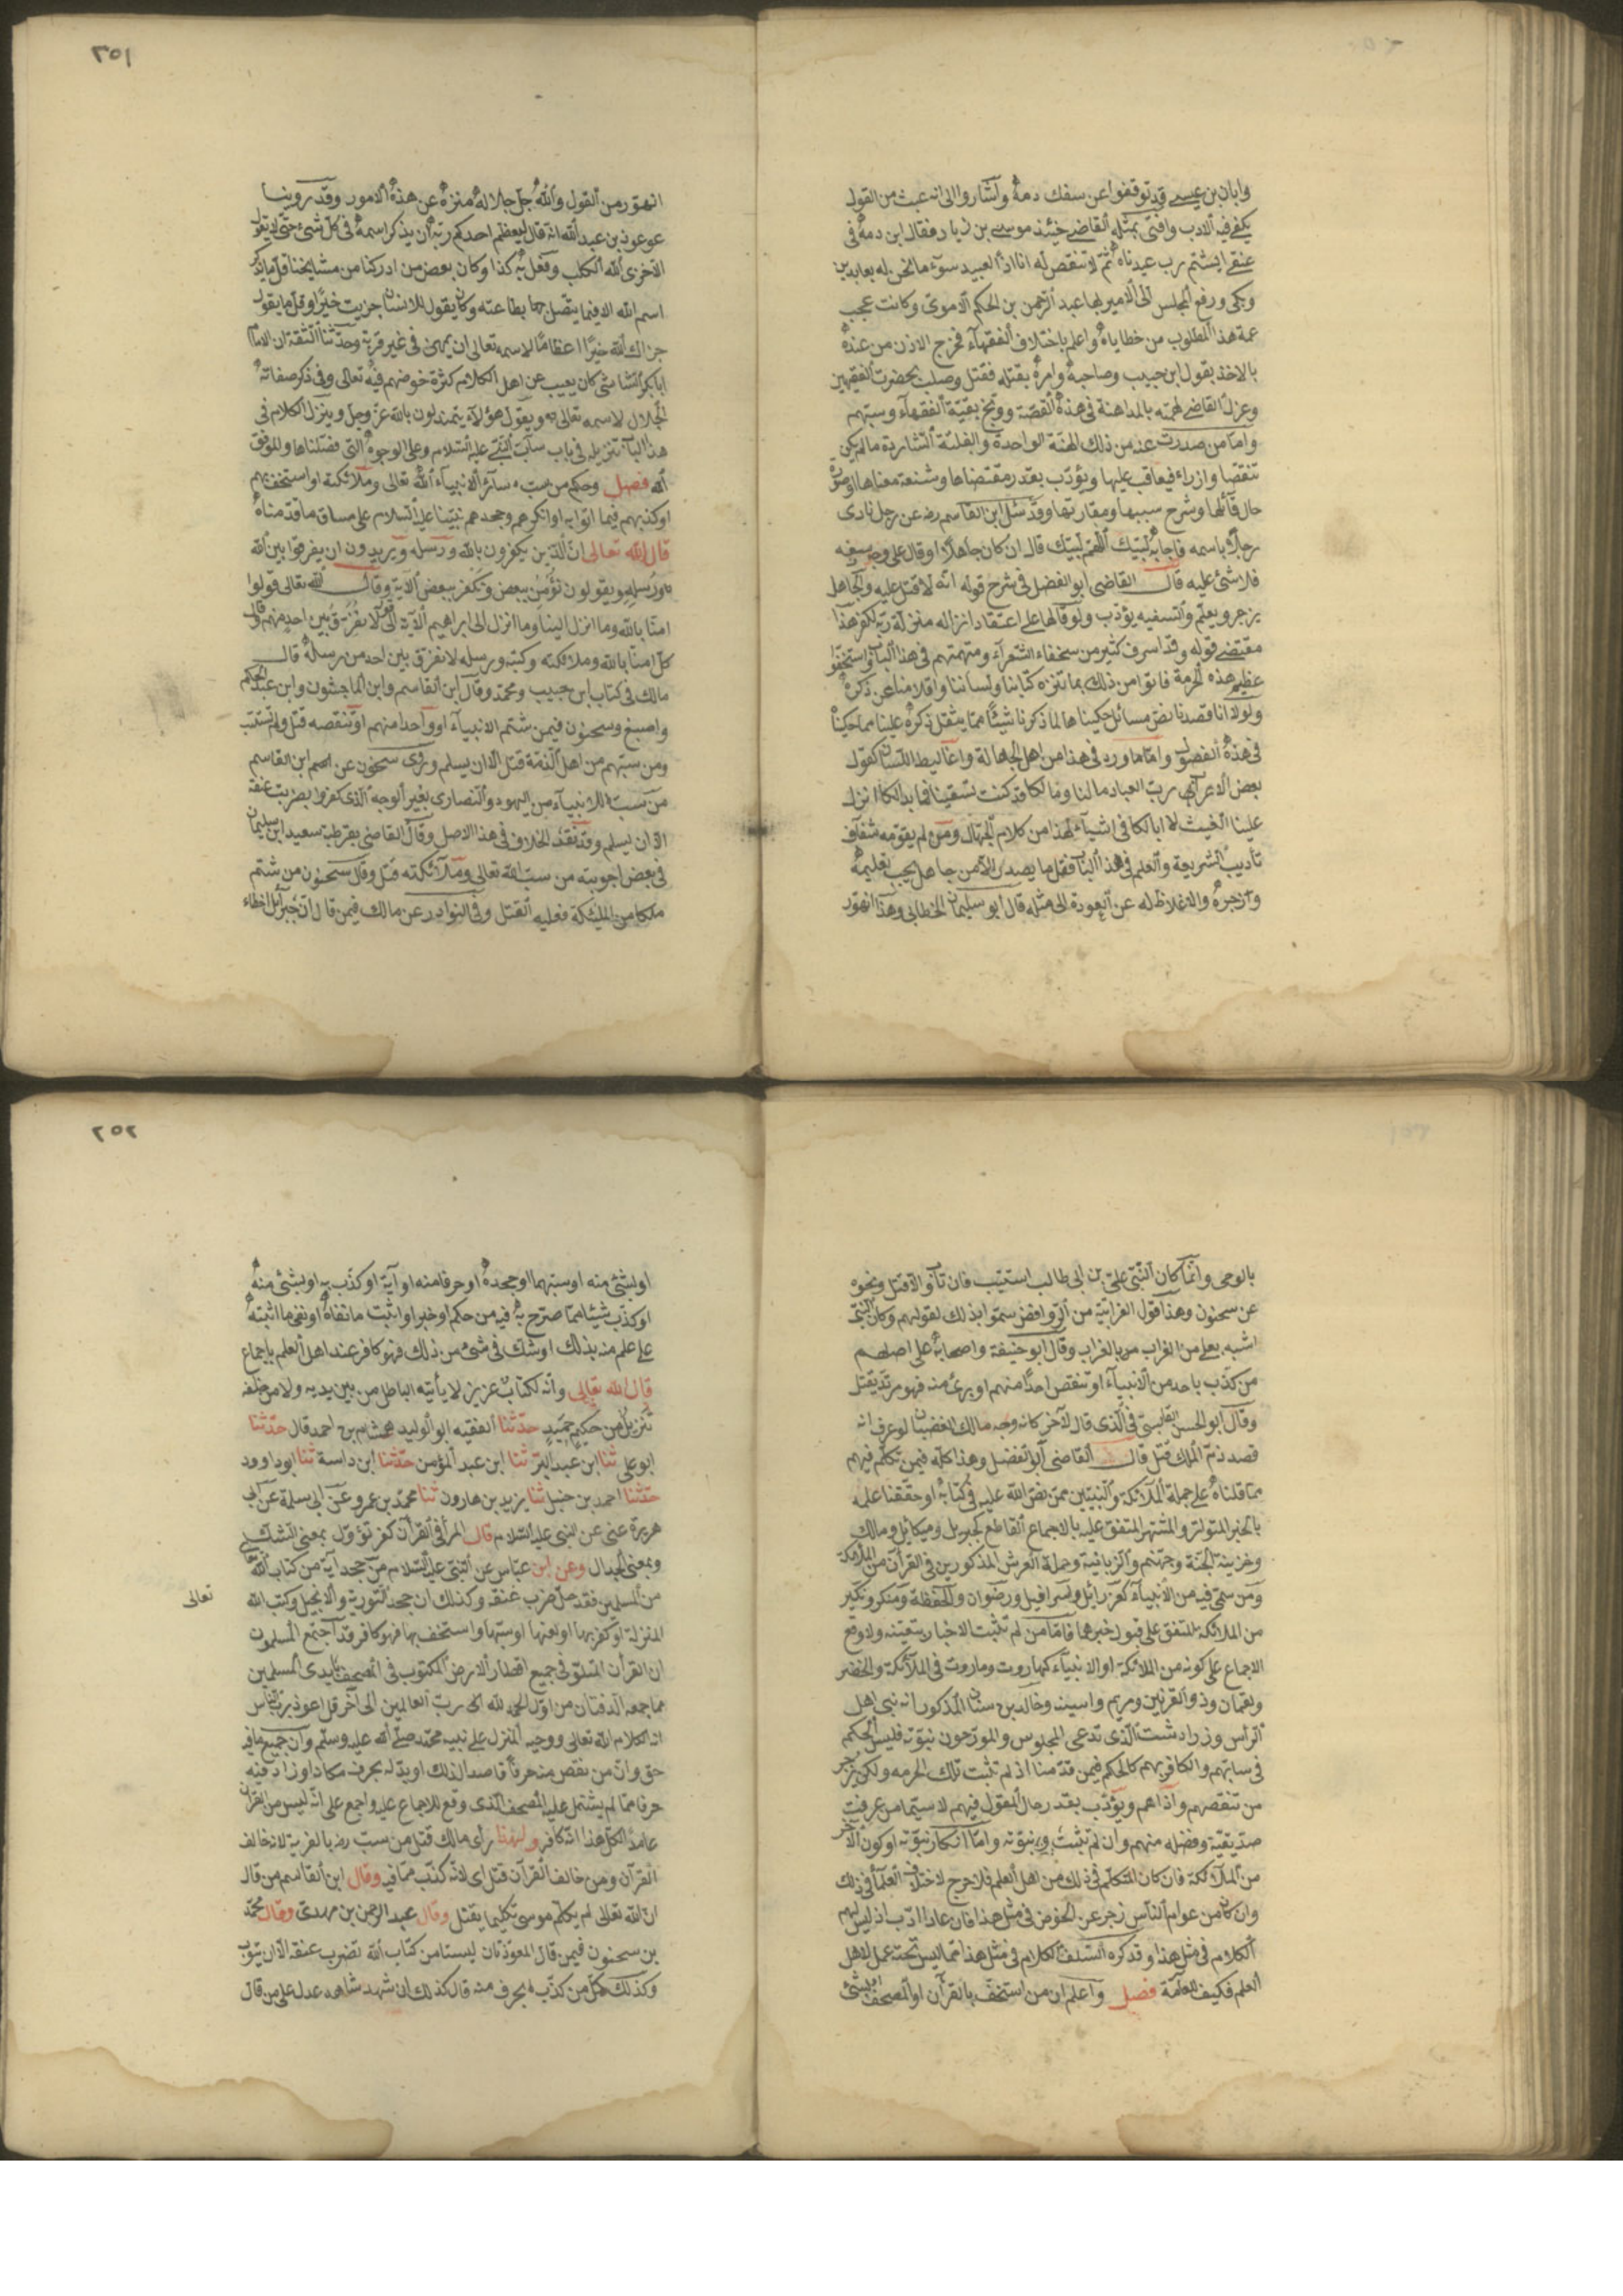 وابان بن عيسى قد توقفوا عن سفك دمه واشاروا الى انه عبث من القول
يكفى فيه الادب وافتى بمثله القاضى حينئذ موسى بن زياد فقال ابن دمه فى
عنقى ايشتم رب عبدناه ثم لا ننتقص له انا اذا لعبيد سوء ما نحن له بعابدين
وبكى ورفع المجلس الى الامير بها عبد الرحمن بن الحكم الاموى وكانت عجب
عمة هذا المطلوب من خطاياه واعلم باختلاف الفقهاء فخرج الاذن من عنده
بالاخذ بقول ابن حبيب وصاحبه وامره بقتله فقتل وصلب بحضرت الفقيهين
وعزل القاضى لتهمته بالمداهنة فى هذه القصة ووبخ بقية الفقهاء وسبهم
واما من صدرت عنه من ذلك الهنة الواحدة والفلتة الشاردة ما لم يكن
تنقصا وازراء فيعاقب عليها ويؤدب بقدر مقتضاها وشنعة معناها وصورة
حال قائلها وشرح سببها ومقارنها وقد سئل ابن القاسم رضه عن رجل نادى
رجلا باسمه فاجابه لبيك اللهم لبيك قال ان كان جاهلا او قال على وجه سفه
فلا شئ عليه قال القاضى ابو الفضل فى شرح قوله انه لا قتل عليه والجاهل
يزجر ويعلم والسفيه يؤدب ولو قالها على اعتقاد انزاله منزلة ربه لكفر هذا
مقتضى قوله وقد اسرف كثير من سخفاء الشعراء ومتهمتهم فى هذا الباب واستخفوا
عظيم هذه الحرمة فاتوا من ذلك بما ننزه كتابنا ولساننا واقلامنا عن ذكره
ولولا انا قصدنا نص مسائل حكيناها لما ذكرنا شيئا مما يثقل ذكره علينا مما حكيناه
فى هذه الفصول واما ما ورد فى هذا من اهل الجهالة واغاليط اللسان كقول
بعض الاعراب رب العباد ما لنا وما لكا قد كنت تسقينا فما بدا لكا انزل
علينا الغيث لا ابا لكا فى اشياء لهذا من كلام الجهال ومن لم يقومه ثقاف
تأديب الشريعة والعلم فى هذا الباب فقل ما يصدر الا من جاهل يجب تعليمه
وزجره والاغلاظ له عن العودة الى مثله قال ابو سليمان الخطابى وهذا تهور
٢٥١
انهور من القول والله جل جلاله منزه عن هذه الامور وقد روينا
عن عوذ بن عبد الله انه قال ليعظم احدكم ربه ان يذكر اسمه فى كل شئ حتى لا يقول
اخزى الله الكلب وفعل به كذا وكان بعض من ادركنا من مشايخنا قل ما يذكر
اسم الله الا فيما يتصل بطاعته وكان يقول للانسان جزيت خيرا وقل ما يقول
جزاك الله خيرا اعظاما لاسمه تعالى ان يمتهن فى غير قربة وحدثنا الثقة ان الامام
ابا بكر الشاشى كان يعيب عن اهل الكلام كثرة خوضهم فيه تعالى وفى ذكر صفاته
اجلال لاسمه تعالى ويقول هؤلاء يتمندلون بالله عز وجل وينزل الكلام فى
هذا الباب تنزيله فى باب ساب النبى عليه السلام وعلى الوجوه التى فصلناها والموفق
الله فصل وحكم من سب سائر الانبياء الله تعالى وملائكته او استخف بهم
او كذبهم فيما اتوا به او انكرهم وجحدهم نبينا عليه السلام على مساق ما قدمناه
قال الله تعالى ان الذين يكفرون بالله ورسله ويريدون ان يفرقوا بين الله
ورسله ويقولون نؤمن ببعض ونكفر ببعض الآية وقال الله تعالى قولوا
امنا بالله وما انزل الينا وما انزل الى ابراهيم الآية الى قوله لا نفرق بين احد منهم وقال
كل امن بالله وملائكته وكتبه ورسله لا نفرق بين احد من رسله قال
مالك فى كتاب ابن حبيب ومحمد وقال ابن القاسم وابن الماجشون وابن عبد الحكم
واصبغ وسحنون فيمن شتم الانبياء او واحدا منهم او تنقصه قتل ولم يستتب
ومن سبهم من اهل الذمة قتل الا ان يسلم وروى سحنون عن ابن القاسم
من سب الانبياء من اليهود والنصارى بغير الوجه الذى كفروا به ضربت عنقه
الا ان يسلم وقد تقدم الخلاف فى هذا الاصل وقال القاضى بقرطبة سعيد ابن سليمان
فى بعض اجوبته من سب الله تعالى وملائكته قتل وقال سحنون من شتم
ملكا من الملئكة فعليه القتل وفى النوادر عن مالك فيمن قال ان جبرائيل اخطاء
بالوحى وانما كان النبى على بن ابى طالب استتيب فان تاب والا قتل ونحوه
عن سحنون وهذا قول الغرابية من الروافض سموا بذلك لقولهم وكان النبى
اشبه بعلى من الغراب بالغراب وقال ابو حنيفة واصحابه على اصلهم
من كذب باحد من الانبياء او تنقص احدا منهم او برئ منه فهو مرتد يقتل
وقال ابو الحسن القابسى فى الذى قال لاخر كانه وجه مالك الغضبان لو عرف انه
قصد ذم الملك قتل قال القاضى ابو الفضل وهذا كله فيمن تكلم فيهم
بما قلناه على جملة الملائكة والنبيين ممن نص الله عليه فى كتابه او حققنا علمه
بالخبر المتواتر والمشتهر المتفق عليه بالاجماع القاطع كجبريل وميكائيل ومالك
وخزينة الجنة وجهنم والزبانية وحملة العرش المذكورين فى القرآن من الملائكة
ومن سمى فيه من الانبياء كعزرائيل واسرافيل ورضوان والحفظة ومنكر ونكير
من الملائكة المتفق على قبول خبرهما فاما من لم تثبت الاخبار بتعيينه ولا وقع
الاجماع على كونه من الملائكة او الانبياء كهاروت وماروت فى الملائكة والخضر
ولقمان وذو القرنين ومريم واسيه وخالد بن سنان المذكور انه نبى اهل
الراس وزرادشت الذى تدعى المجوس والمورخون نبوته فليس الحكم
فى سابهم والكافر بهم كالحكم فيمن قدمنا اذ لم تثبت تلك الحرمه ولكن يزجر
من تنقصهم وآذاهم ويؤدب بقدر حال المقول فيهم لا سيما من عرفت
صديقيته وفضله منهم وان لم تثبت نبوته واما انكار نبوته او كون الآخر
من الملائكة فان كان المتكلم فى ذلك من اهل العلم فلا حرج لاختلاف العلماء فى ذلك
وان كان من عوام الناس زجر عن الخوض فى مثل هذا فان عاد ادب اذ ليس لهم
الكلام فى مثل هذا وقد كره السلف الكلام فى مثل هذا مما ليس تحته عمل لاهل
العلم فكيف للعامة فصل واعلم ان من استخف بالقرآن او المصحف او بشئ
٢٥٢
او بشئ منه او سبهما او جحده او حرفا منه او آية او كذب به او بشئ منه
او كذب شيئا مما صرح به فيه من حكم او خبر او اثبت ما نفاه او نفى ما اثبته
على علم منه بذلك او شك فى شئ من ذلك فهو كافر عند اهل العلم باجماع
قال الله تعالى وانه لكتاب عزيز لا يأتيه الباطل من بين يديه ولا من خلفه
تنزيل من حكيم حميد حدثنا الفقيه ابو الوليد هشام بن احمد قال حدثنا
ابو على ثنا ابن عبد البر ثنا ابن عبد المؤمن حدثنا ابن داسة ثنا ابو داوود
حدثنا احمد بن حنبل ثنا يزيد بن هارون ثنا محمد بن عمرو عن ابى سلمة عن ابى
هريرة عنى عن النبى عليه السلام قال المرأ فى القرآن كفر تؤول بمعنى الشك
وبمعنى الجدال وعن ابن عباس عن النبى عليه السلام من جحد آية من كتاب الله
تعالى
من المسلمين فقد حل ضرب عنقه وكذلك ان جحد التورية والانجيل وكتب الله
المنزلة او كفر بها او لعنها او سبها واستخف بها فهو كافر وقد اجتمع المسلمون
ان القرأن المتلو فى جميع اقطار الارض المكتوب فى المصحف بايدى المسلمين
مما جمعه الدفتان من اول الحمد لله رب العالمين الى آخر قل اعوذ برب الناس
انه كلام الله تعالى ووحيه المنزل على نبيه محمد صلى الله عليه وسلم وان جميع ما فيه
حق وان من نقص منه حرفا قاصدا لذلك او بدله بحرف مكانه او زاد فيه
حرفا مما لم يشتمل عليه المصحف الذى وقع الاجماع عليه واجمع على انه ليس من القرآن
عامدا لكل هذا انه كافر ولهذا رأى مالك قتل من سب رضه بالفرية لانه خالف
القرآن ومن خالف القرآن قتل اى لانه كذب مما فيه وقال ابن القاسم من قال
ان الله تعالى لم يكلم موسى تكليما يقتل وقال عبد الرحمن بن مهدى وقال محمد
بن سحنون فيمن قال المعوذتان ليستا من كتاب الله تضرب عنقه الا ان يتوب
وكذلك كل من كذب بحرف منه قال كذلك ان شهد شاهد عدل على من قال